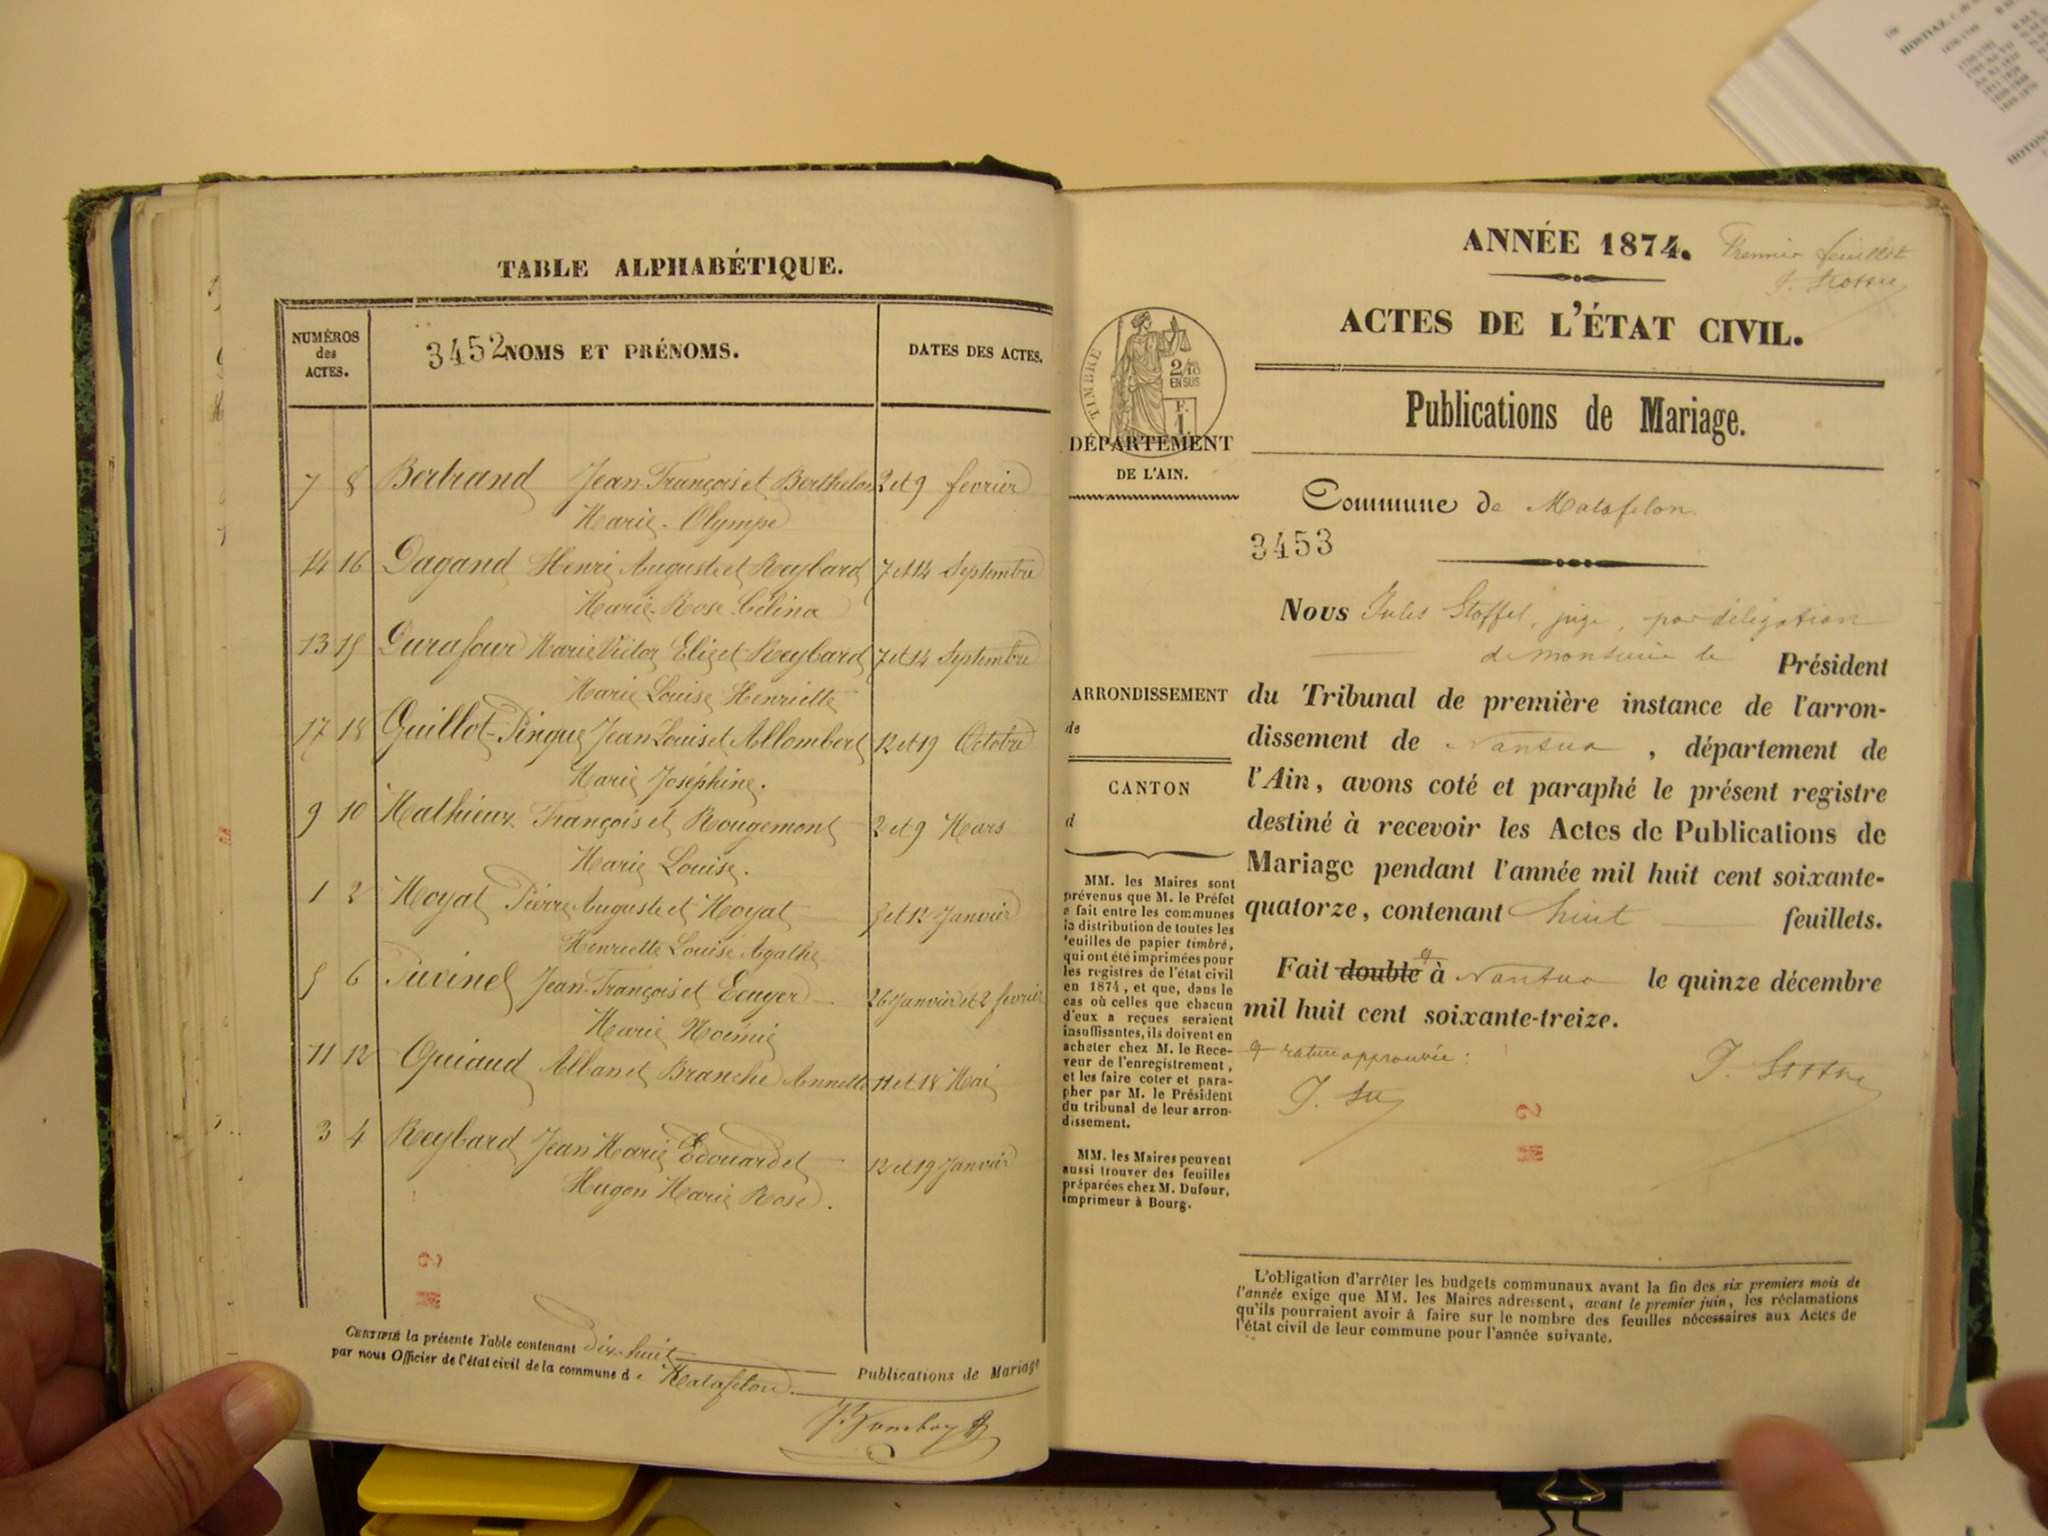 TABLE ALPHABÉTIQUE.
NUMÉROS
des
ACTES.
3452 NOMS ET PRÉNOMS.
DATES DES ACTES.
7 8 Bertrand Jean François et Berthelon 2 et 9 fevrier
Marie Olympe
14 16 Dagand Henri Auguste et Reybard 7 et 14 Septembre
Marie Rose Célina
13 15 Durafour Marie Victor Elie et Reybard 7 et 14 Septembre
Marie Louise Henriette
17 18 Guillot-Pingue Jean Louis et Allombert 12 et 19 Octobre
Marie Joséphine.
9 10 Mathieux François et Rougemont 2 et 9 Mars
Marie Louise.
1 2 Moyat Pierre Auguste et Moyat 5 et 12 Janvier
Henriette Louise Agathe
5 6 Puvinel Jean-François et Ecuyer 26 Janvier et 2 fevrier
Marie Noémie
11 12 Quiaud Alban et Branche Annette 11 et 18 Mai
3 4 Reybard Jean Marie Edouard et 12 et 19 Janvier
Hugon Marie Rose.
CERTIFIÉ la présente Table contenant Dix-huit Publications de Mariage
par nous Officier de l'état civil de la commune de Matafelon
ANNÉE 1874. Premier feuillet
ACTES DE L'ÉTAT CIVIL.
Publications de Mariage.
TIMBRE
2/10
EN SUS
F.
1.
DÉPARTEMENT
DE L'AIN.
Commune de Matafelon
3453
Nous Jules Stoffel, juge, par délégation
de monsieur le Président
du Tribunal de première instance de l'arron-
dissement de Nantua, département de
l'Ain, avons coté et paraphé le présent registre
destiné à recevoir les Actes de Publications de
Mariage pendant l'année mil huit cent soixante-
quatorze, contenant huit feuillets.
Fait double à Nantua le quinze décembre
mil huit cent soixante-treize.
rature approuvée:
ARRONDISSEMENT
de
CANTON
d
MM. les Maires sont
prévenus que M. le Préfet
a fait entre les communes
la distribution de toutes les
feuilles de papier timbré,
qui ont été imprimées pour
les registres de l'état civil
en 1874, et que, dans le
cas où celles que chacun
d'eux a reçues seraient
insuffisantes, ils doivent en
acheter chez M. le Rece-
veur de l'enregistrement,
et les faire coter et para-
pher par M. le Président
du tribunal de leur arron-
dissement.
MM. les Maires peuvent
aussi trouver des feuilles
préparées chez M. Dufour,
imprimeur à Bourg.
L'obligation d'arrêter les budgets communaux avant la fin des six premiers mois de
l'année exige que MM. les Maires adressent, avant le premier juin, les réclamations
qu'ils pourraient avoir à faire sur le nombre des feuilles nécessaires aux Actes de
l'état civil de leur commune pour l'année suivante.